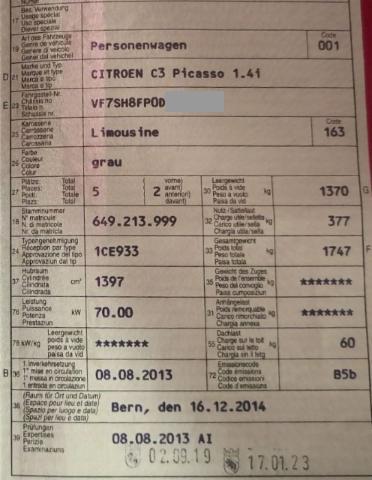 Numer
Bes. Verwendung
Usage spécial
Uso speciale
Diever spezial
17
Art des Fahrzeugs
Genre de véhicule
Genere di veicolo
Gener dal vehichel
19
Personenwagen
Code
001
D 21
Marke und Typ
Marque et type
Marca e tipo
Marca e tip
CITROEN C3 Picasso 1.4i
E 23
Fahrgestell-Nr.
Châssis no
Telaio n.
Schassis nr.
VF7SH8FP0D
25
Karosserie
Carrosserie
Carrozzeria
Carossaria
Limousine
Code
163
26
Farbe
Couleur
Colore
Colur
grau
27
Plätze: Total
Places: Total
Posti: Totale
Plazs: Total
5
vorne)
avant)
anteriori)
davant)
2
30
Leergewicht
Poids à vide
Peso a vuoto
Paisa da vid
kg
1370
G
18
Stammnummer
N° matricule
N. di matricola
Nr. da matricla
649.213.999
32
Nutz-/Sattellast
Charge utile/sellette
Carico utile/sella
Chargia utila/sella
kg
377
24
Typengenehmigung
Réception par type
Approvazione del tipo
Approvaziun dal tip
1CE933
33
Gesamtgewicht
Poids total
Peso totale
Paisa totala
kg
1747
F
37
Hubraum
Cylindrée
Cilindrata
Cilindrada
cm³
1397
35
Gewicht des Zuges
Poids de l'ensemble
Peso del convoglio
Paisa cumposiziun
kg
*******
76
Leistung
Puissance
Potenza
Prestaziun
kW
70.00
31
Anhängelast
Poids remorquable
Carico rimorchiato
Chargia annexa
kg
*******
78 kW/kg
Leergewicht
poids à vide
peso a vuoto
paisa da vid
*******
55
Dachlast
Charge sur le toit
Carico sul tetto
Chargia sin il tetg
kg
60
B 36
1. Inverkehrsetzung
1re mise en circulation
1a messa in circolazione
1. entrada en circulaziun
08.08.2013
72
Emissionscode
Code émissions
Codice emissioni
Code d'emissiuns
B5b
38
(Raum für Ort und Datum)
(Espace pour lieu et date)
(Spazio per luogo e data)
(Spazi per lieu e data)
Bern, den 16.12.2014
39
Prüfungen
Expertises
Perizie
Examinaziuns
08.08.2013 AI
02.09.19
17.01.23